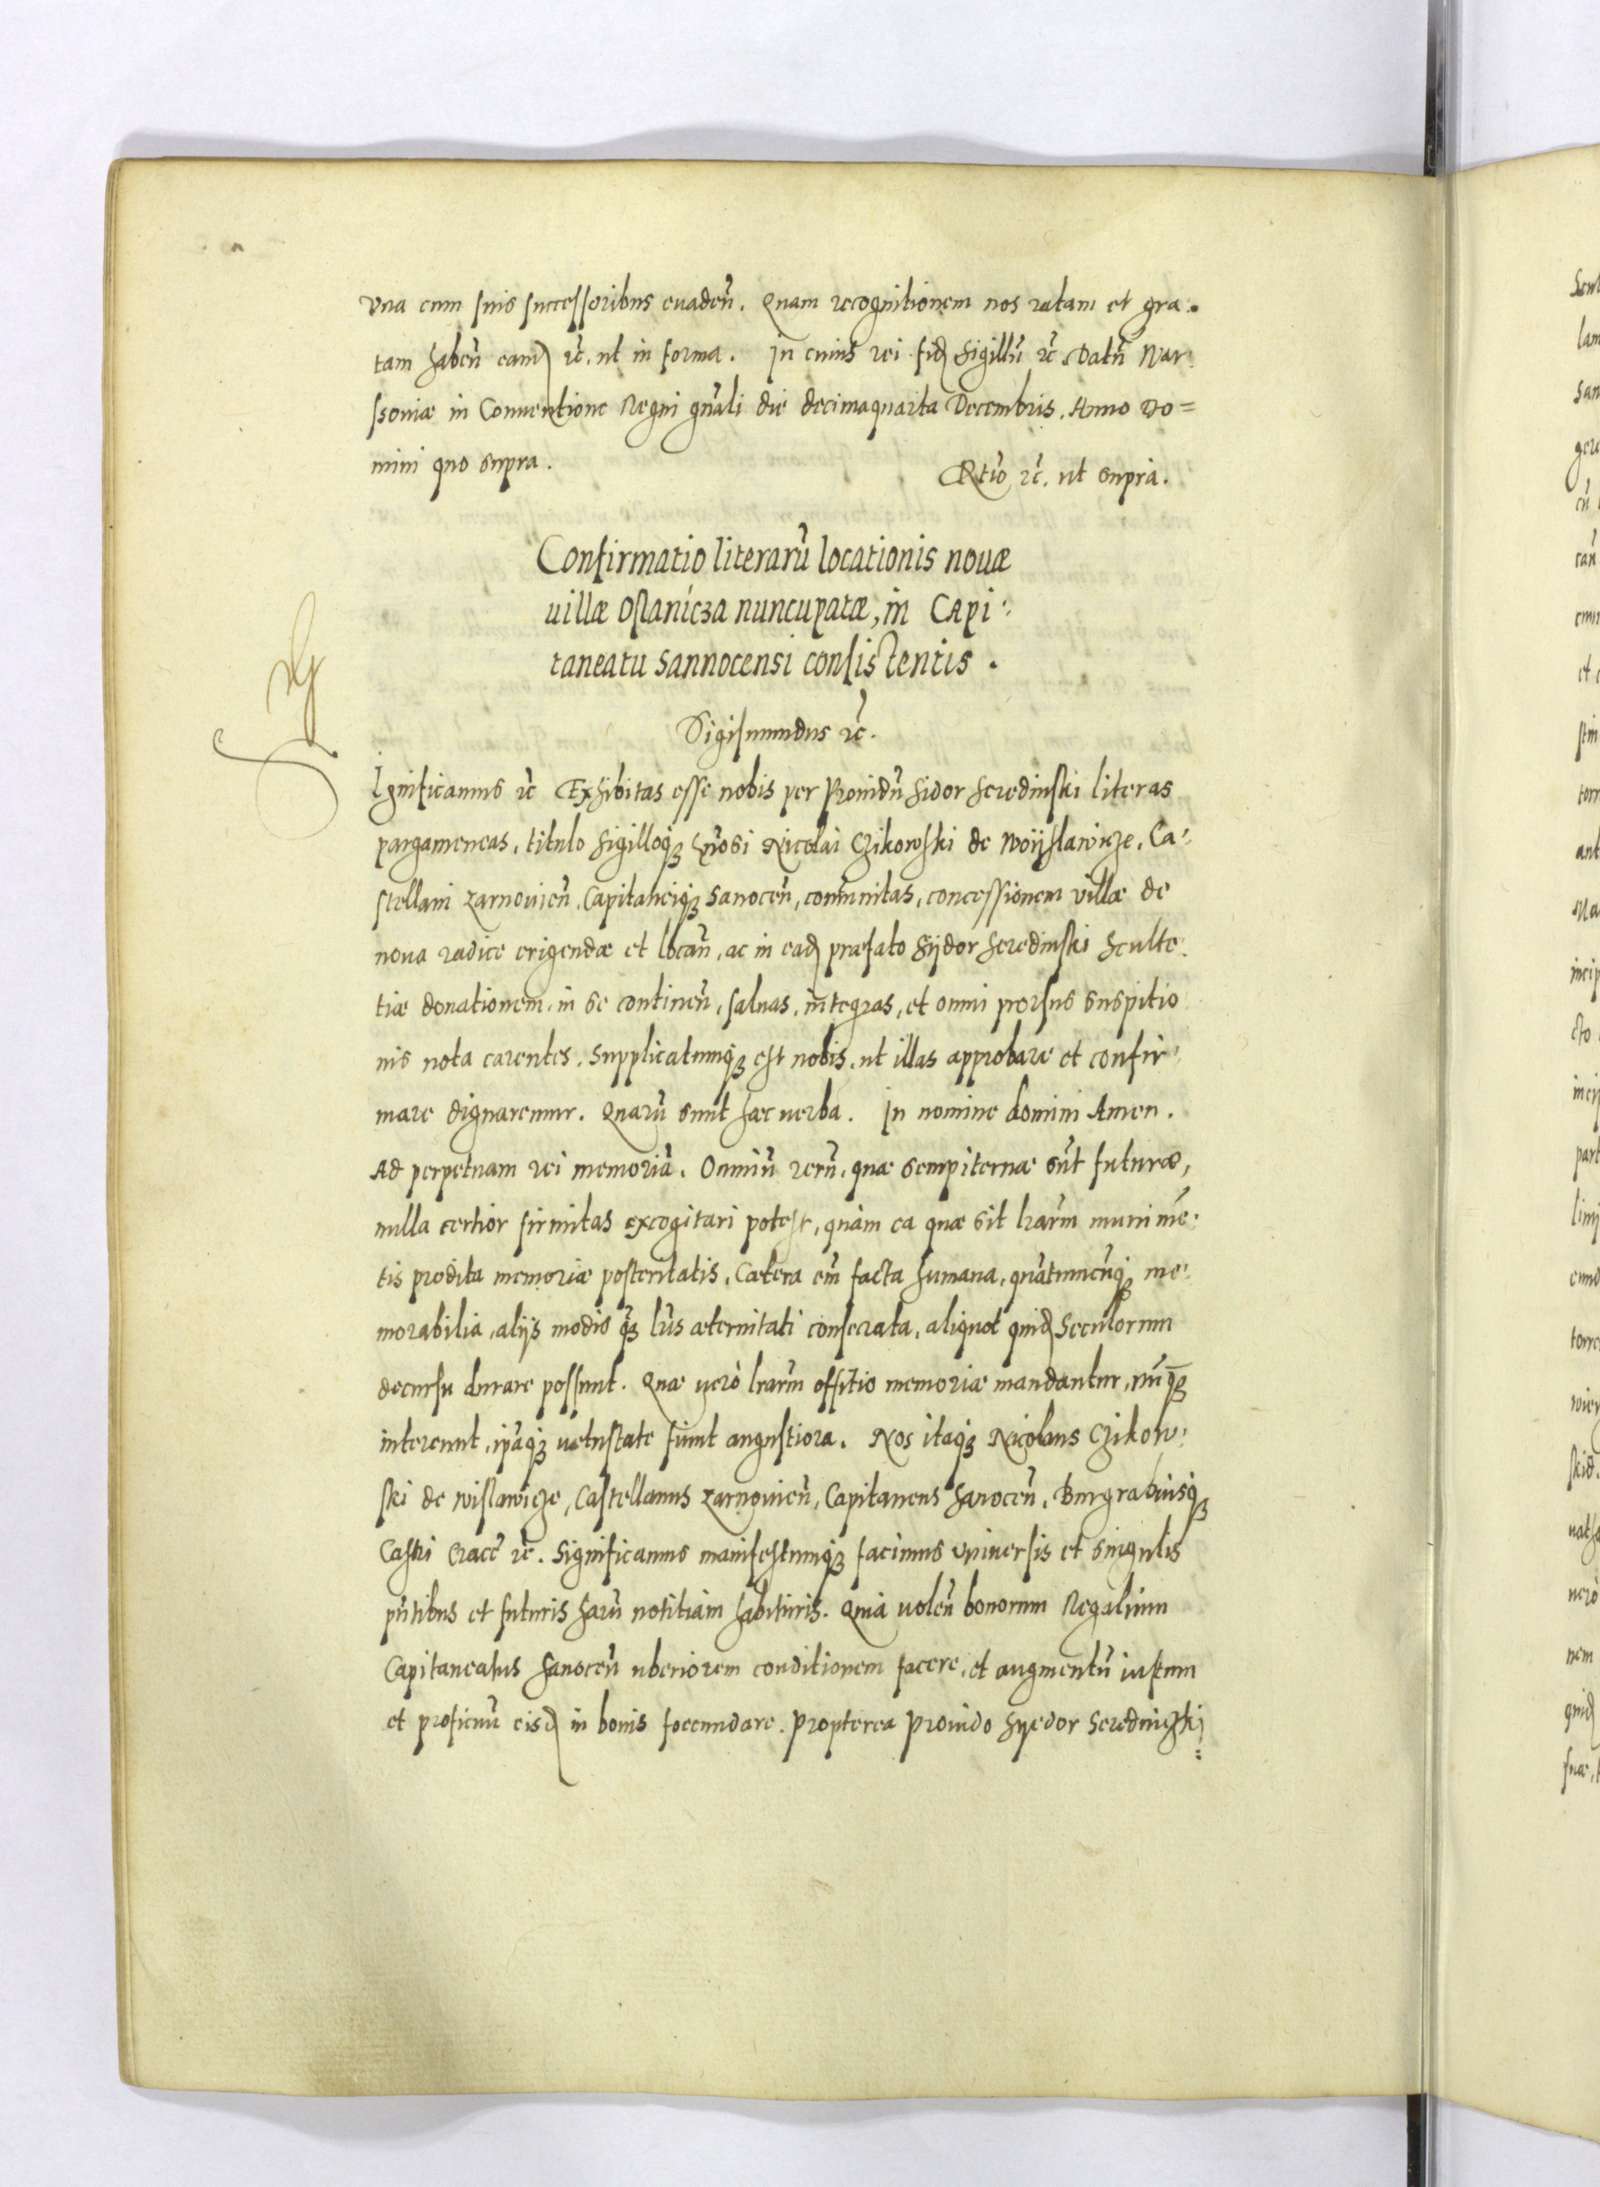 vna cum suis successoribus euadeñ. Quam recognitionem nos ratam et gra-
tam habeñ eamq rc̃. ut in forma. In cuius rei fidẽ sigillũ rc̃ Datũ War-
ssouiæ in Conuentione Regni gñali die decimaquarta Decembris. Anno Do=
mini quo supra.
Rtio rc̃. ut supra.
Confirmatio literarũ locationis nouæ
uillæ Ostanicza nuncupatæ, in Capi-
taneatu Sannocensi consistentis.
Sigismundus rc̃.
Ignificamus rc̃ Exhibitas esse nobis per Prouidũ Sidor Seredinski literas
pargameneas, titulo sigilloq3 gñosi Nicolai Czikowski de Woijslawicze, Ca-
stellani Zarnouieñ. Capitaneiq3 Sanoceñ, com̃unitas, concessionem villæ de
noua radice erigendæ et locañ, ac in eadẽ præfato Sijdor Seredinski Sculte-
tiæ donationem in se contineñ, saluas, integras, et omni prorsus suspitio
nis nota carentes. Supplicatumq3 est nobis, ut illas approbare et confir-
mare dignaremur. Quarũ sunt hæc uerba. In nomine domini Amen.
Ad perpetuam rei memoriã. Omniũ rerũ, quæ sempiternæ sũt futuræ,
nulla certior firmitas excogitari potest, quàm ea quæ sit lrarũm munimẽ-
tis prodita memoriæ posteritatis. Cætera em̃ facta humana, quãtumcũq3 me-
morabilia, alijs modis q̃3 lr̃is æternitati consecrata, aliquot quidẽ Seculorum
decursu durare possunt. Quæ uerò lrarũm offitio memoriæ mandantur, nũq3
intereunt, ipãq3 uetustate fiunt angustiora. Nos itaq3 Nicolaus Czikow-
ski de Wislawicze, Castellanus Zarnouieñ, Capitaneus Sanoceñ, Burgrabiusq3
Castri Cracc̃ rc̃. Significamus manifestumq3 facimus vniuersis et singulis
pñtibus et futuris harũ notitiam habituris. Quia uoleñ bonorum Regalium
Capitaneatus Sanoceñ uberiorem conditionem facere, et augmentũ iustum
et proficuũ eisdẽ in bonis foecundare. Propterea Prouido Syedor Seredniczki